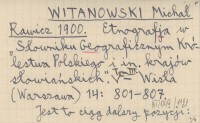 WITANOWSKI Michał
Rawicz 1900. Etnografja w
"Słowniku Geograficznym Kró-
lestwa Polskiego i in. krajów
słowiańskich" V-XIII Wisła
(Warszawa) 14: 801-807.
Jest to ciąg dalszy pozycji: